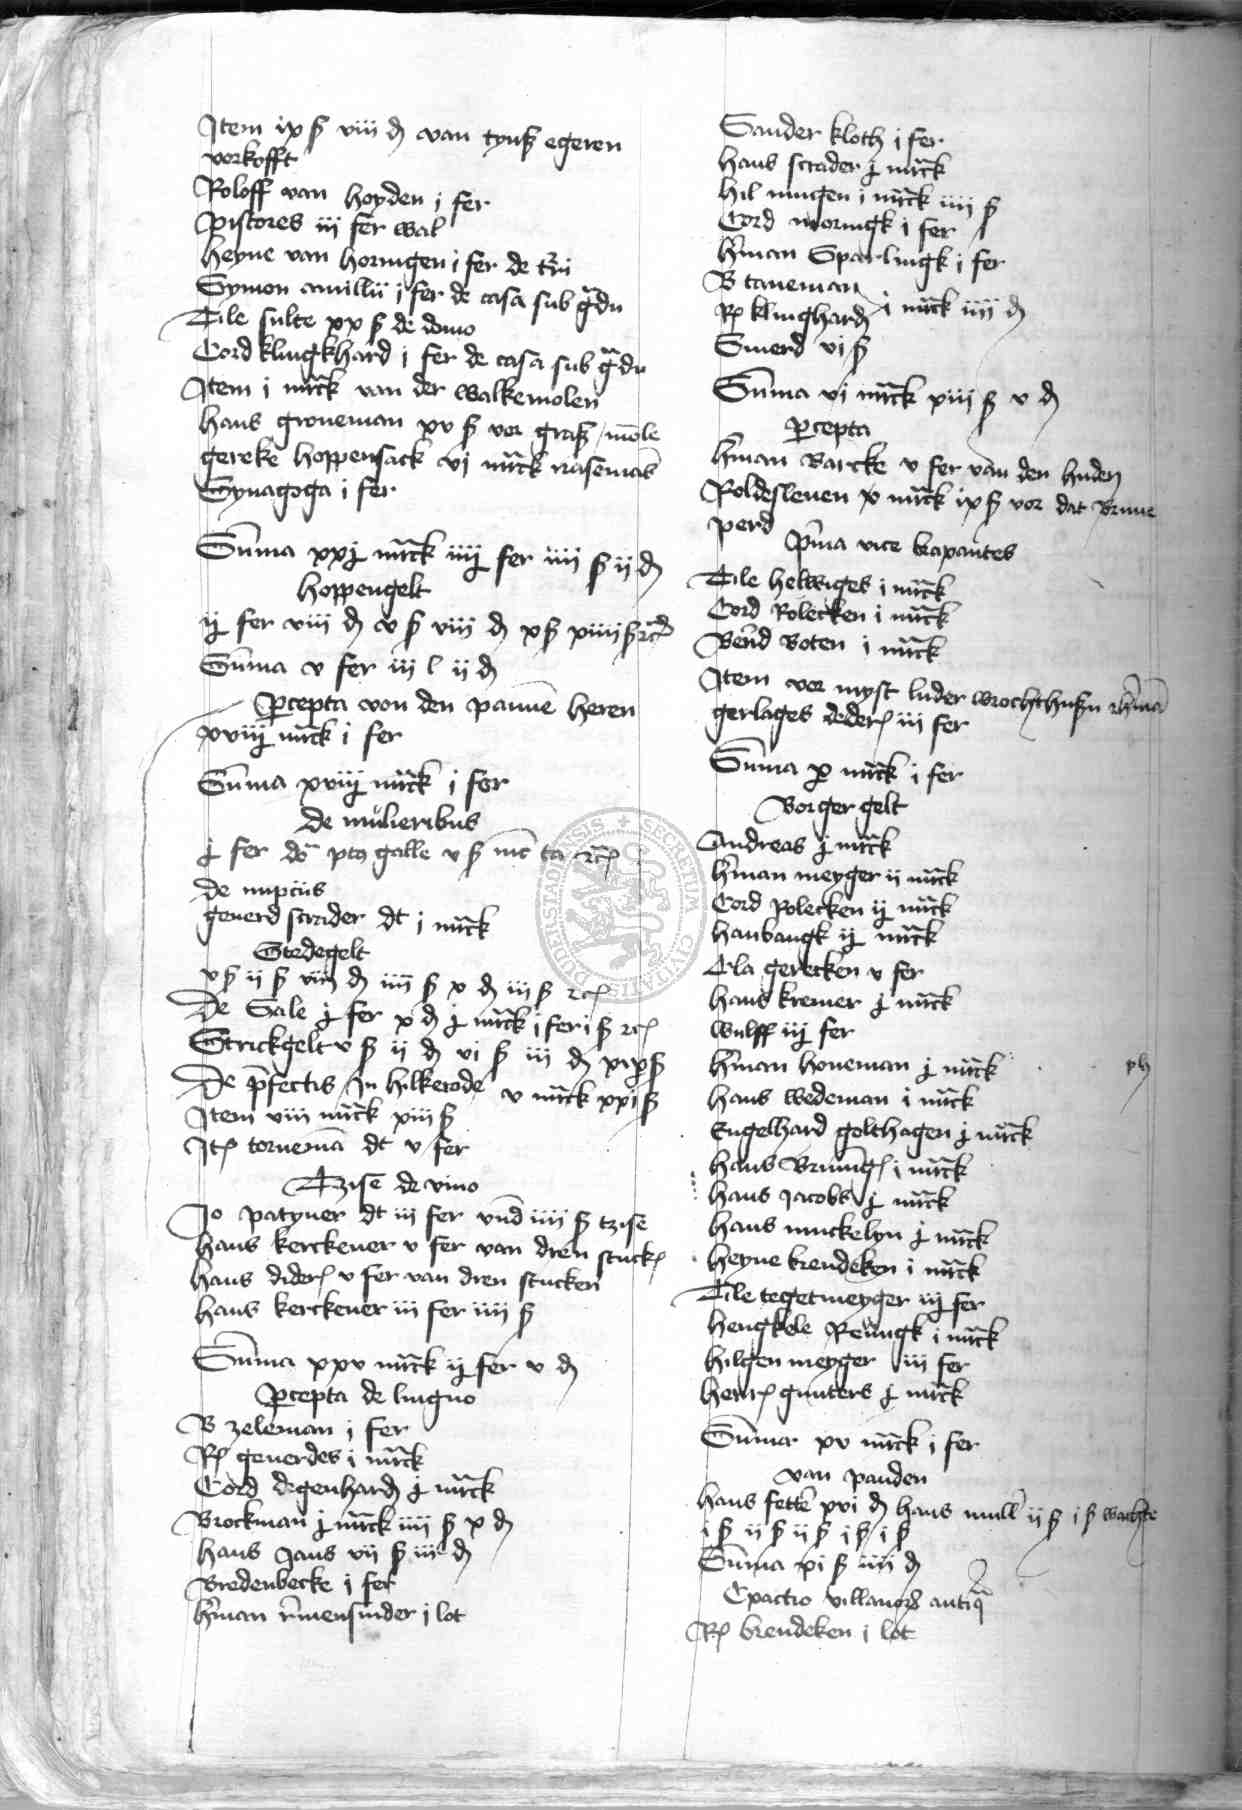 Item ix ß viii ₰ van tynß egeren
vorkofft
Roloff van hoyden i fer
pistores iii fer wal
heyne van horingen i fer de
Symon amillii i fer de casa sub gdu
Tile sulte xx ß de domo
Cord klingkhard i fer de casa sub gdu
Item i mrck van der walkemolen
hans groneman xv ß vor graß mole
gereke hoppensack vi mrck
Synagoga i fer
Sūma xxj mrck iiij fer iiii ß ii ₰
hoppengelt
ij fer viii ₰ v ß viii ₰ xß xiiii ß
Sūma v fer iii l ii ₰
Pcepta von den pannē heren
xviij mrck i fer
Sūma xviij mrck i fer
de mulieribus
j fer galle v ß
de nupciis
geuerd scrader dt i mrck
Stedegelt
v ß ii ß viii ₰ iiii ß x ₰ iii ß
De Sale j fer x ₰ j mrck i fer i ß
Strickgelt v ß ii ₰ vi ß iii ₰ xix ß
De pfectis In hilkerode v mrck xxi ß
Item viii mrck xiii ß
It tornemā dt v fer
Tzise de vino
Jo patyner dt iii fer vnd iiii ß tzise
hans kerckener v fer van dren stuck
hans dider v fer van dren stucken
hans kerckener iii fer iiii ß
Sūma xxv mrck ij fer v ₰
Pcepta de linguo
B zeleman i fer
R geuerdes i mrck
Cord degenhard j mrck
Brockman j mrck iiii ß x ₰
hans Jans vii ß iii ₰
Bredenbecke i fer
hman i lot
Sander kloth i fer
hans scrader j mrck
hil mingen i mrck iiii ß
Cord moringk i fer
hman Sparlingk i fer
B taneman
R klinghard i mrck iiii ₰
Smerd vi ß
Sūma vi mrck xiii ß v ₰
Pcepta
hman Barcke v fer van den huden
Roldesleuen x mrck ix ß vor dat brune
perd
Pma vice
Tile helwiges i mrck
Cord Rolecken i mrck
Bernd Boten i mrck
Item vor myst luder
gerlages deder iii fer
Sūma x mrck i fer
Borger gelt
Andreas j mrck
hman meyger ii mrck
Cord Rolecken ij mrck
hanbangk ij mrck
Cla gerecken v fer
hans kremer j mrck
Wulff iij fer
hman honeman j mrck
hans wedeman i mrck
Engelhard golthagen j mrck
hans Bruning i mrck
hans Jacobs j mrck
hans munckelyn j mrck
heyne brendeken i mrck
Tile tegetmeyger iij fer
hengkele i mrck
hilgen meyger iii fer
henr gunters j mrck
Sūma xv mrck i fer
van panden
hans fette xvi ₰ hans mull ii ß i ß wachte
i ß ii ß ii ß i ß i ß
Sūma xi ß iiii ₰
Exactio villanor antiq
R brendeken i lot
SECRETUM CIVITATIS DUDERSTADIENSIS